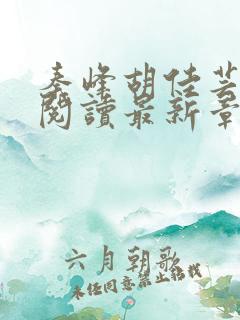 秦峰胡佳芸
閱讀最新章
六月朝歌
未经同意禁止转载